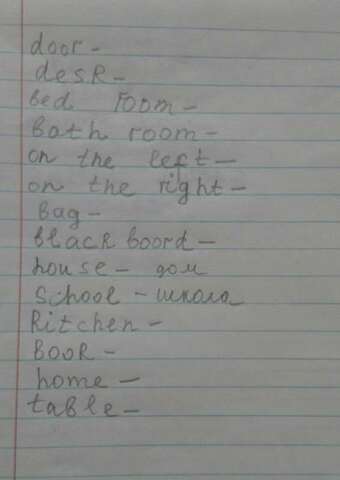 door -
desk -
bed room -
bath room -
on the left -
on the right -
bag -
black boord -
house - дом
school - школа
kitchen -
book -
home -
table -